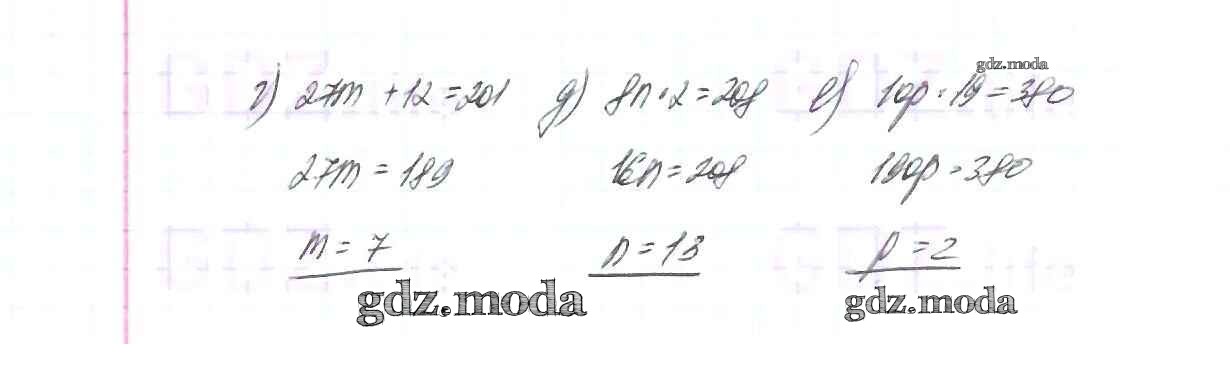 gdz.moda
г) 27m + 12 = 201 д) 8n · 2 = 208 е) 10p · 19 = 380
27m = 189 16n = 208 190p = 380
m = 7 n = 13 p = 2
gdz.moda gdz.moda